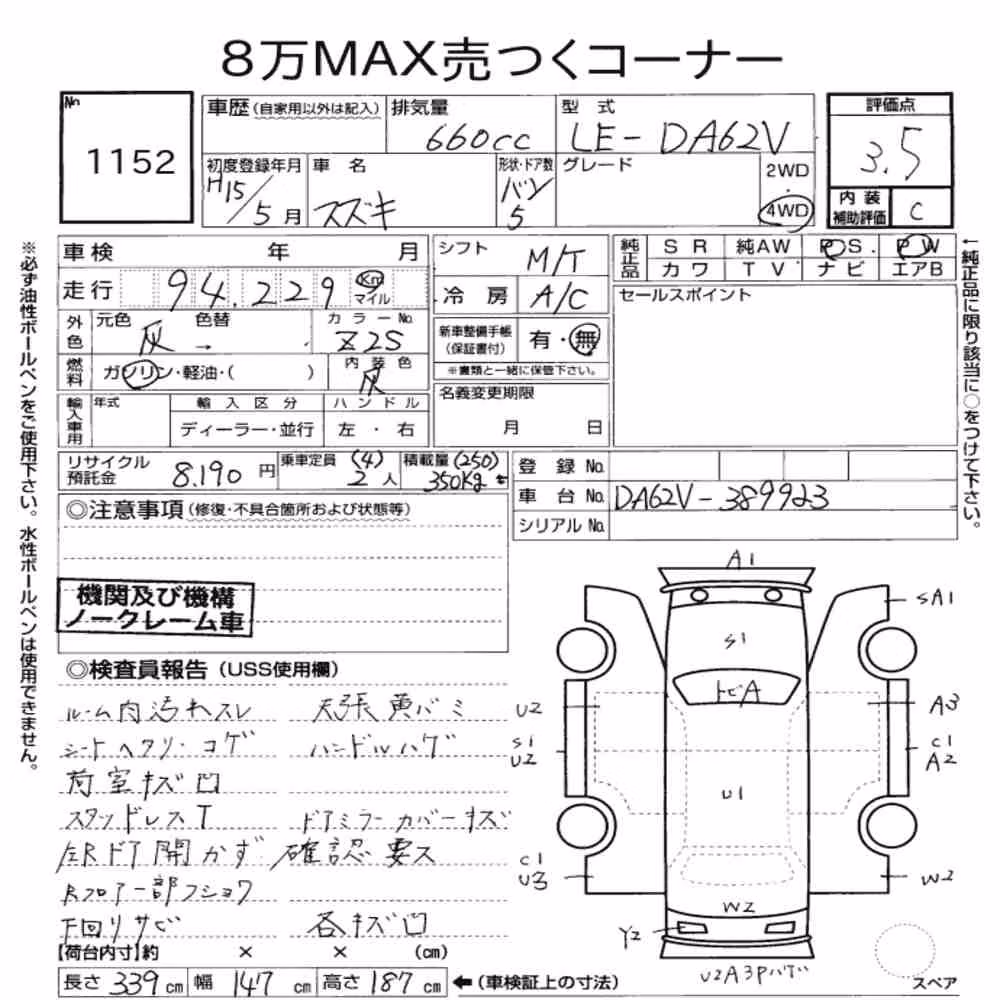 8万MAX売つくコーナー
No
1152
車歴(自家用以外は記入)
排気量
660cc
型式
LE-DA62V
評価点
3.5
初度登録年月
H15/5月
車名
スズキ
形状・ドア数
バン
5
グレード
2WD
・
4WD
内装
補助評価
C
車検 年 月
シフト
M/T
純正品
SR 純AW P.S. PW
カワ TV ナビ エアB
走行
94.229
Km
マイル
冷房
A/C
セールスポイント
外色
元色
灰
色替
→
カラーNo.
Z2S
新車整備手帳
(保証書付)
有・無
※書類と一緒に保管下さい。
燃料
ガソリン・軽油・( )
内装色
灰
名義変更期限
月 日
輸入車用
年式
輸入区分
ディーラー・並行
ハンドル
左・右
リサイクル
預託金
8.190円
乗車定員
(4)
2人
積載量
(250)
350Kg
登録No.
車台No.
DA62V-389923
シリアルNo.
◎注意事項(修復・不具合箇所および状態等)
機関及び機構
ノークレーム車
◎検査員報告(USS使用欄)
ルーム内汚れスレ 天張黄バミ
シートヘタリ・コゲ ハンドルハゲ
荷室キズ凹
スタッドレスT ドアミラーカバーキズ
左Rドア開かず 確認要ス
Rフロアー部フショク
下回りサビ 各キズ凹
【荷台内寸】約 × × (cm)
長さ339cm 幅147cm 高さ187cm ←(車検証上の寸法)
A1
SA1
S1
トビA
U2
A3
S1
U2
C1
A2
U1
C1
U3
W2
W2
Y2
U2A3Pハゲ
スペア
※必ず油性ボールペンをご使用下さい。水性ボールペンは使用できません。
←純正品に限り該当に○をつけて下さい。